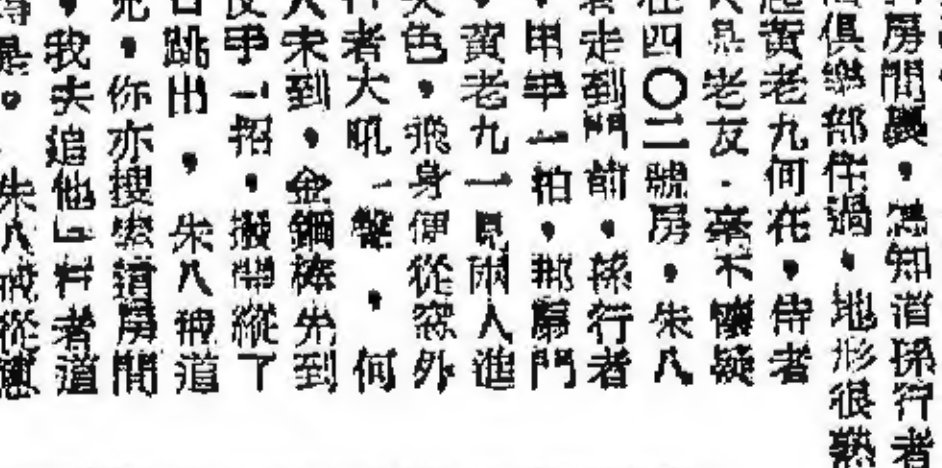 房間裏，怎知道孫行者
俱樂部住過，地形很熟
黃老九何在，侍者
是老友，毫不懷疑
四〇二號房，朱八
走到門前，孫行者
甲乎一拍，那扇門
黃老九一見兩人進
色，飛身便從窓外
者大吼一聲，何
未到，金鋼棒先到
手一招，撇帶縱了
跳出，朱八戒道
，你亦搜索這房間
，我去追他」行者道
是。朱八戒從